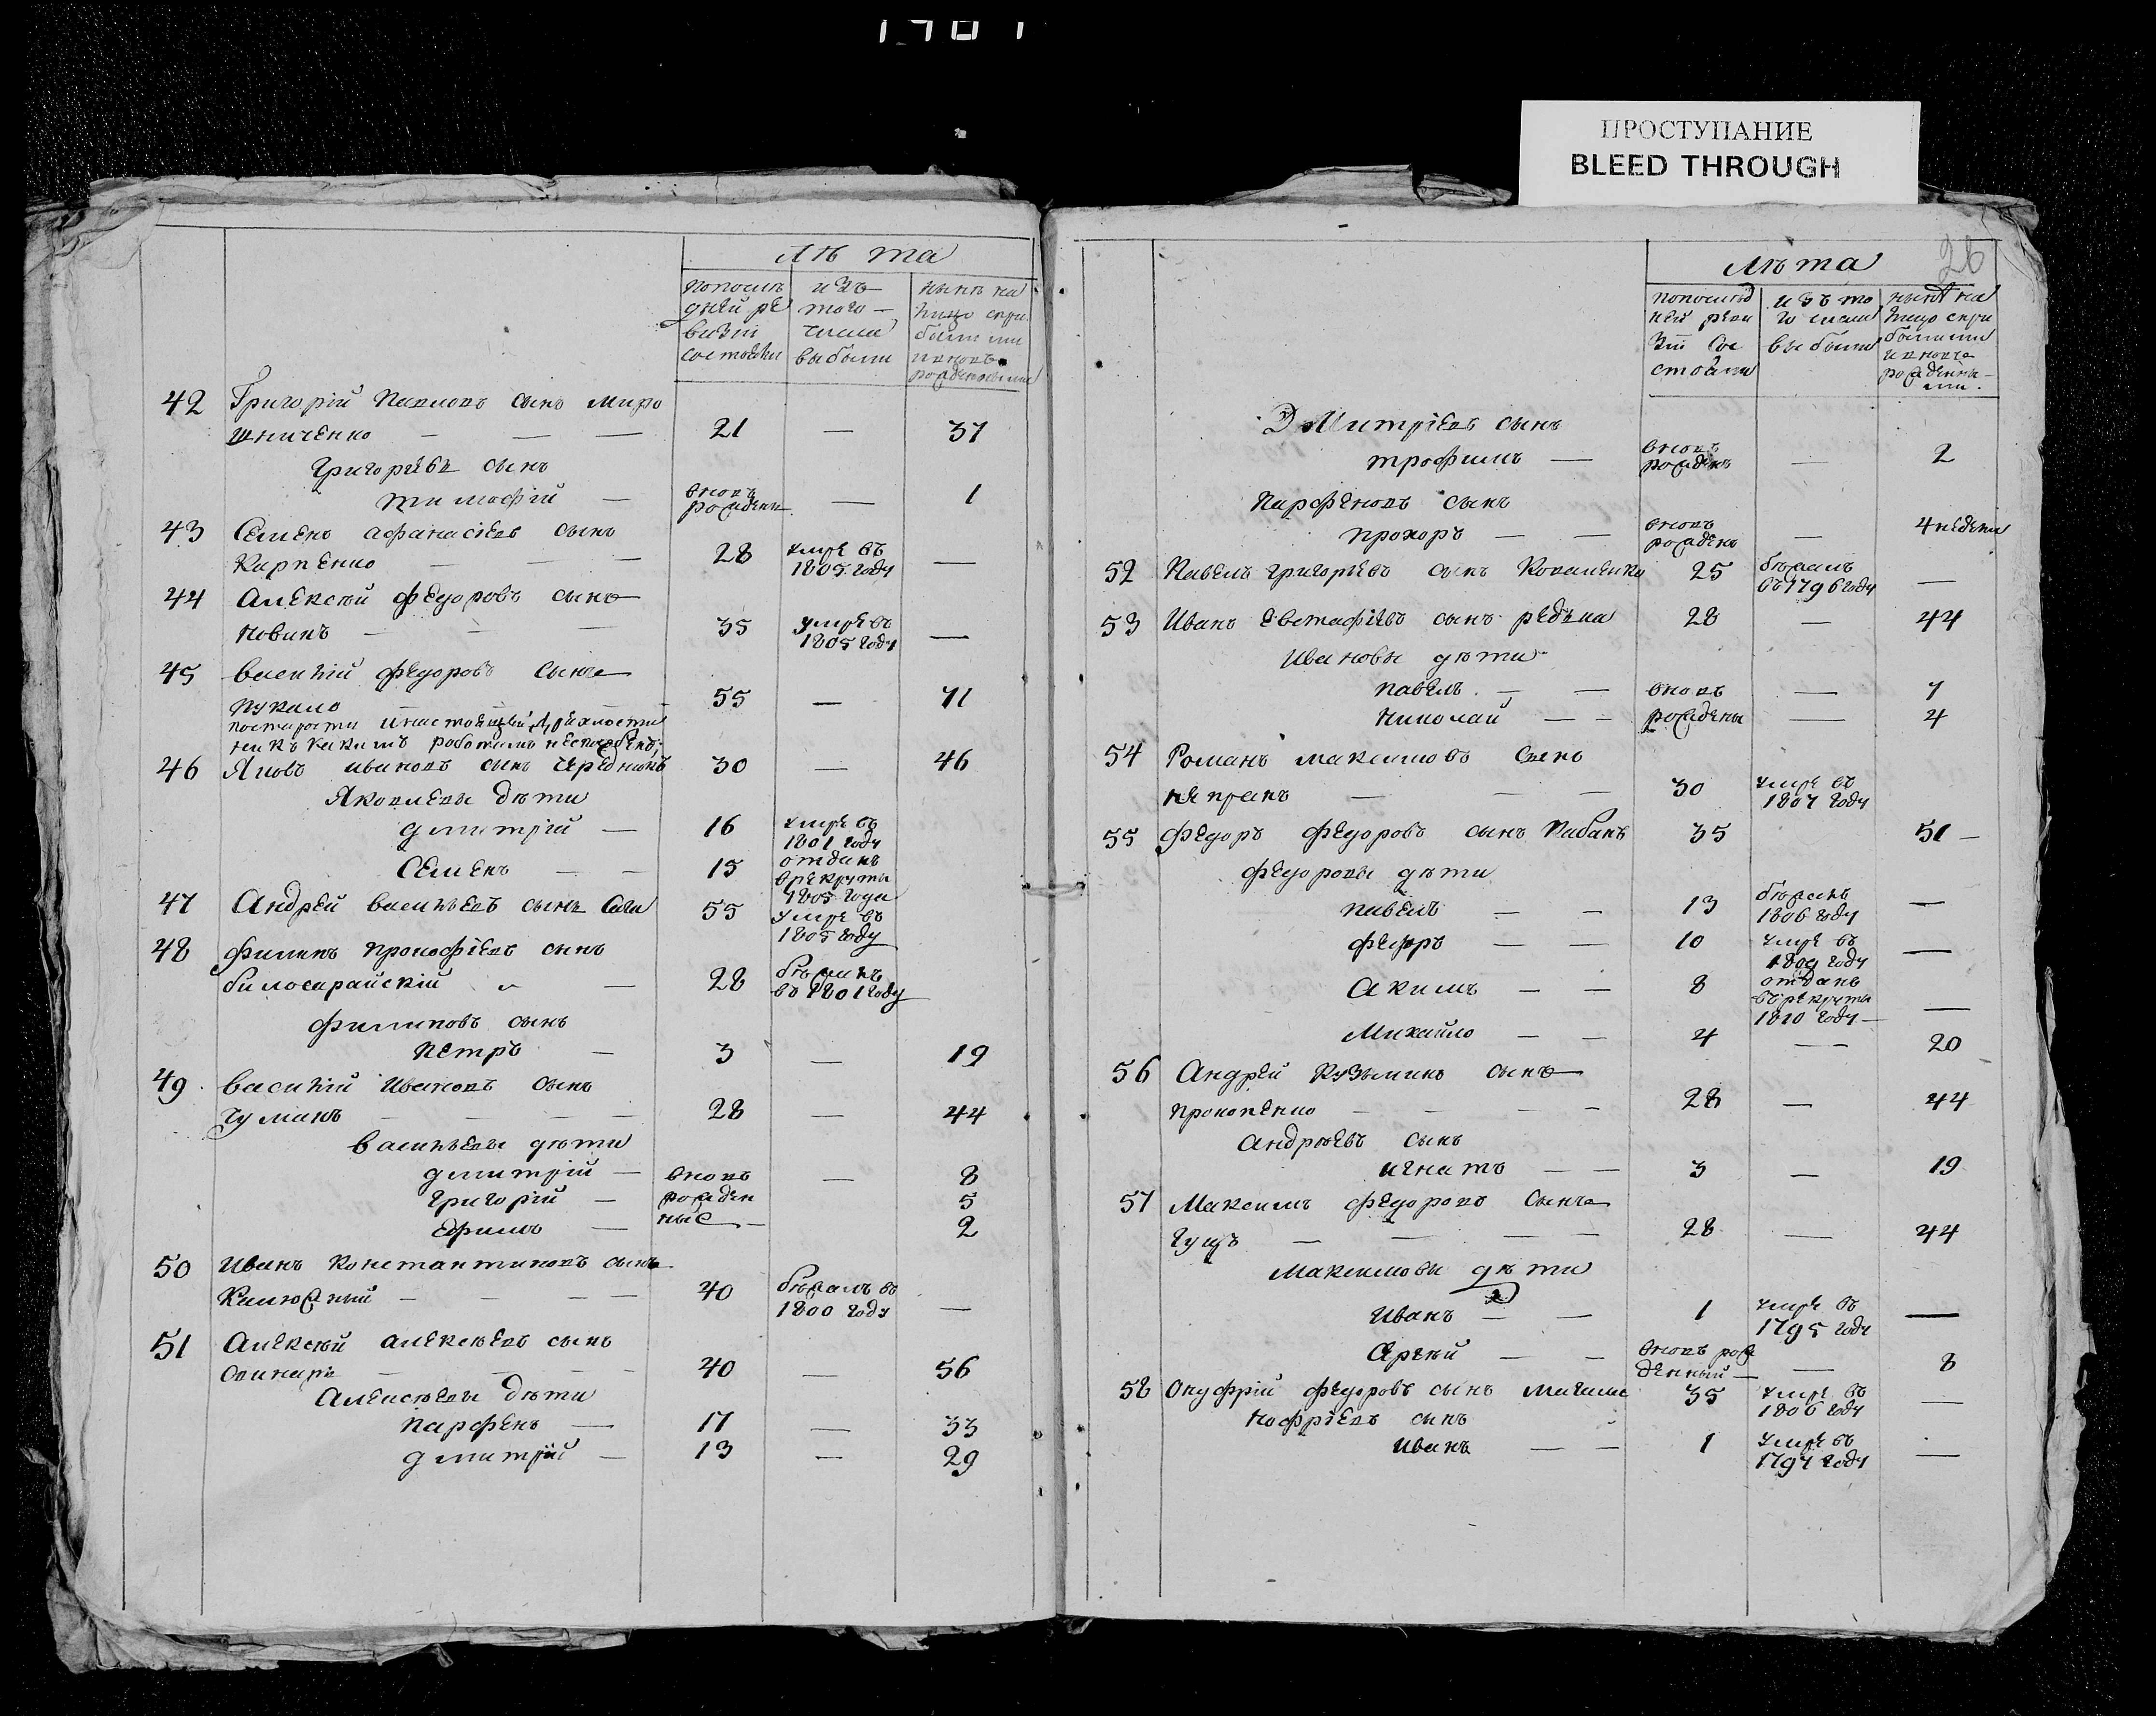 ПРОСТУПАНИЕ
BLEED THROUGH
26
лѣта
попослѣ
дней ре
визіи
состояли
изъ
того
числа
выбыли
нынѣ на
лицо съ при
былыми
и вновь
рожденными
42 Григорій Павловъ сынъ Миро
шниченко — — — 21 — 37
Григорьевъ сынъ
Тимофій — вновь рожденъ — 1
43 Семенъ Афанасіевъ сынъ
Карпенко — — — 28 умре въ 1805 году —
44 Алексѣй Федоровъ сынъ
Новикъ — — — 35 умре въ 1805 году —
45 Василій Федоровъ сынъ
Пукало 55 — 71
по старости и настоящей дряхлости
ни къ какимъ работамъ неспособенъ
46 Яковъ Ивановъ сынъ Чередникъ 30 — 46
Яковлевы дѣти
Дмитрій — 16 умре въ 1801 году
Семенъ — — 15 отданъ в рекруты 1805 года
47 Андрей Васильевъ сынъ Сага 55 умре въ 1805 году
48 Филипъ Прокофіевъ сынъ
Билосарайскій — 28 бѣжалъ въ 1801 году
Филиповъ сынъ
Петръ — 3 — 19
49 Василій Ивановъ сынъ
Чумакъ — — — — 28 — 44
Васильевы дѣти
Дмитрій — вновь — 8
Григорій — рожден 5
Ефимъ — ные — 2
50 Иванъ Константиновъ сынъ
Калюжный — — — — 40 бѣжалъ въ 1800 году —
51 Алексѣй Алексѣевъ сынъ
— — — 40 — 56
Алексѣевы дѣти
Парфенъ — 17 — 33
Дмитрій — 13 — 29
лѣта
попослѣд
ней реви
зіи сос
тояли
изъ то
го числа
выбыли
нынѣ на
лицо съ при
былыми
и вновь
рожденны
ми.
Дмитріевъ сынъ
Трофимъ — вновь рожденъ — 2
Парфеновъ сынъ
Прохоръ — — вновь рожденъ — 4 недели
52 Павелъ Григорьевъ сынъ Коваленко 25 бѣжалъ въ 1796 году —
53 Иванъ Евстафіевъ сынъ Редька 28 — 44
Ивановы дѣти
Павелъ — — вновь — 7
Николай — — рождены — 4
54 Романъ Максимовъ сынъ
— — — 30 умре въ 1807 году
55 Федоръ Федоровъ сынъ Кабакъ 35 51 —
Федоровы дѣти
Павелъ — — 13 бѣжалъ 1806 году —
Федоръ — — 10 умре въ 1809 году —
Акимъ — — 8 отданъ въ рекруты 1810 году —
Михайло — — 4 — 20
56 Андрей Кузьминъ сынъ
Прокопенко — — — — 28 — 44
Андрѣевъ сынъ
Игнатъ — — 3 — 19
57 Максимъ Федоровъ сынъ
Гущъ — — — — 28 — 44
Максимовы дѣти
Иванъ — — 1 умре въ 1795 году —
Сергѣй — — вновь рож денный — — 8
58 Онуфрій Федоровъ сынъ 35 умре въ 1806 году —
Нофріевъ сынъ
Иванъ — — 1 умре въ 1797 году —